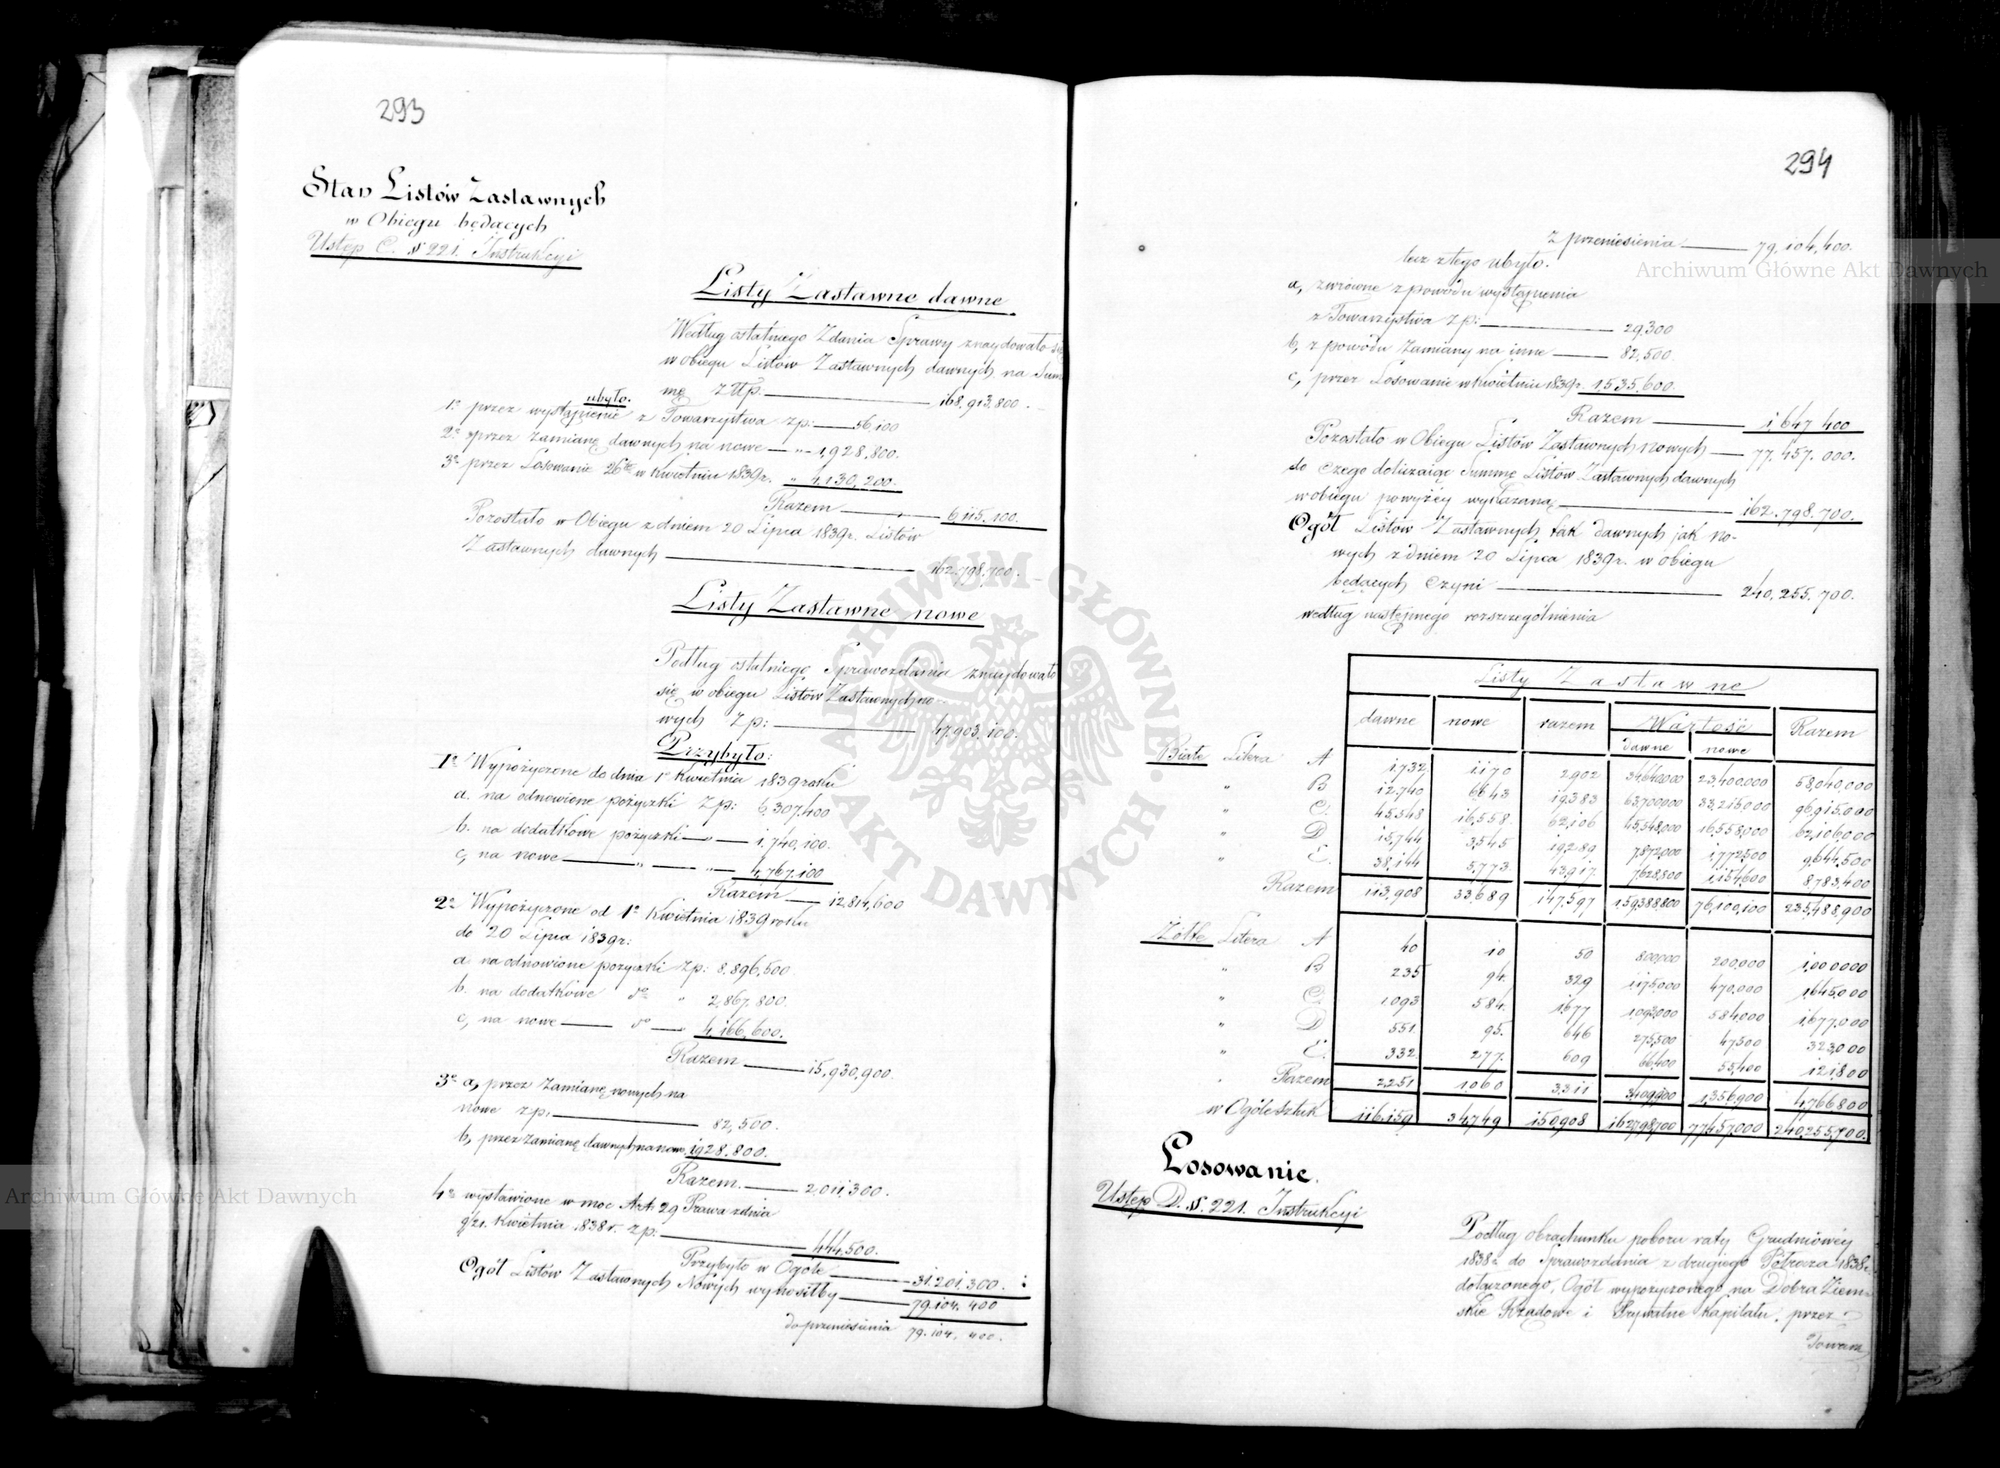 293
Stan Listów Zastawnych
w Obiegu będących
Ustęp C. § 221. Instrukcyi
Listy Zastawne dawne
Według ostatniego Zdania Sprawy znaydowało się
w obiegu Listów Zastawnych dawnych na Sum-
mę Złtp. 168,913,800.
ubyło.
1º przez wystąpienie z Towarzystwa zp: 56,100
2º przez zamianę dawnych na nowe „ 1,928,800.
3º przez Losowanie 26te w Kwietniu 1839r. „ 4,130,200.
Razem 6,115,100.
Pozostało w Obiegu z dniem 20 Lipca 1839r. Listów
Zastawnych dawnych 162.798,700.
Listy Zastawne nowe
Podług ostatniego Sprawozdania znaydowało
się w obiegu Listów Zastawnych no-
wych Zp: 47.903,100.
Przybyło:
1º Wypożyczone do dnia 1º Kwietnia 1839 roku
a. na odnowione pożyczki Zp: 6,307,400
b. na dodatkowe pożyczki „ 1,740,100.
c, na nowe „ „ 4,767,100
Razem 12,814,600
2º Wypożyczone od 1º Kwietnia 1839 roku
do 20 Lipca 1839r:
a na odnowione pożyczki Zp: 8,896,500
b. na dodatkowe dº „ 2,867,800.
c, na nowe dº „ 4,166,600.
Razem 15,930,900.
3º a, przez Zamianę nowych na
nowe Zp: 82,500.
b, przez zamianę dawnych na nowe 1928,800.
Razem 2,011,300.
4º wystawione w moc Art: 29 Prawa z dnia
9/21. Kwietnia 1838 r. zp: 444,500.
Przybyło w Ogóle 31.201,300.
Ogół Listów Zastawnych Nowych wynosiłby 79.104,400
do przeniesienia 79.104,400.
294
z przeniesienia 79,104,400.
lecz z tego ubyło.
a, zwrócone z powodu wystąpienia
z Towarzystwa Zp: 29,300
b, z powodu Zamiany na inne 82,500.
c, przez Losowanie w Kwietniu 1839r. 1,535,600.
Razem 1,647,400
Pozostało w Obiegu Listów Zastawnych nowych 77.457.000.
do czego doliczając Summę Listów Zastawnych dawnych
w obiegu powyżey wykazaną 162.798.700.
Ogół Listów Zastawnych tak dawnych jak no-
wych z dniem 20 Lipca 1839r. w obiegu
będących czyni 240,255,700.
według następnego rozszczególnienia
Listy Zastawne
dawne nowe razem Wartość Razem
dawne nowe
Białe Litera A 1,732 1,170 2,902 34,640,000 23,400,000 58,040,000
„ B 12,740 6,643 19,383 63,700,000 33,215,000 96,915,000
„ C. 45,548 16,558. 62,106 45,548,000 16,558,000 62,106,000
„ D 15,744 3,545 19,289 7,872,000 1,772,500 9,644,500
„ E. 38,144 5,773 43,917. 7,628,800 1,154,600 8,783,400
Razem 113,908 33,689 147,597 159,388,800 76,100,100 235,488,900
Żółte Litera A 40 10 50 800,000 200,000 1,000,000
„ B 235 94. 329 1,175,000 470,000 1,645,000
„ C. 1093 584. 1,677 1,092,000 584,000 1,677,000
„ D 551. 95. 646 275,500 47500 323,000
„ E. 332. 277. 609 66,400 55,400 121,800
„ Razem 2,251 1060 3,311 3,409,900 1,356,900 4,766,800
w Ogóle sztuk 116,159 34,749 150,908 162,798,700 77,457,000 240,255,700.
Losowanie.
Ustęp D. § 221. Instrukcyi
Podług obrachunku poboru raty Grudniowéy
1838r. do Sprawozdania z drugiego Półrocza 1838r.
dołączonego, Ogół wypożyczonego na Dobra Ziem-
skie Rządowe i Prywatne Kapitału, przez
Towarz
Archiwum Główne Akt Dawnych
Archiwum Główne Akt Dawnych
ARCHIWUM GŁÓWNE AKT DAWNYCH